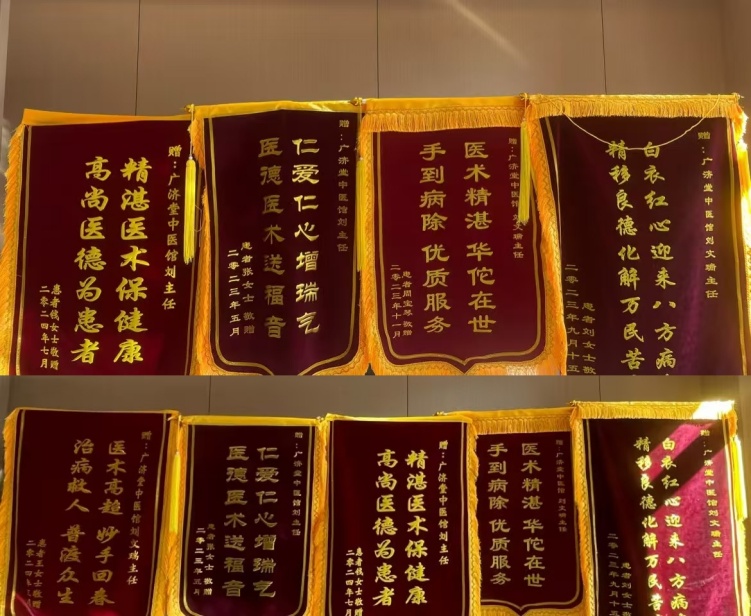 赠：广济堂中医馆刘主任
精湛医术保健康
高尚医德为患者
患者钱女士敬赠
二零二四年七月
赠：广济堂中医馆刘主任
仁爱仁心增瑞气
医德医术送福音
患者张女士敬赠
二零二三年五月
赠：广济堂中医馆刘文瑞主任
医术精湛 华佗在世
手到病除 优质服务
患者周宝琴敬赠
二零二三年十一月
赠：广济堂中医馆刘文瑞主任
白衣红心迎来八方病
精移良德化解万民苦
患者刘女士敬
二零二三年九月十五
赠：广济堂中医馆刘文瑞主任
医术高超 妙手回春
治病救人 普渡众生
患者王女士敬赠
二零二四年
赠：广济堂中医馆刘主任
仁爱仁心增瑞气
医德医术送福音
患者张女士敬赠
二零二三年五月
赠：广济堂中医馆刘主任
精湛医术保健康
高尚医德为患者
患者钱女士敬赠
二零二四年七月
赠：广济堂中医馆刘文瑞主任
医术精湛 华佗在世
手到病除 优质服务
赠：广济堂中医馆刘文瑞主任
白衣红心迎来八方病
精移良德化解万民苦
患者刘女
二零二三年九月